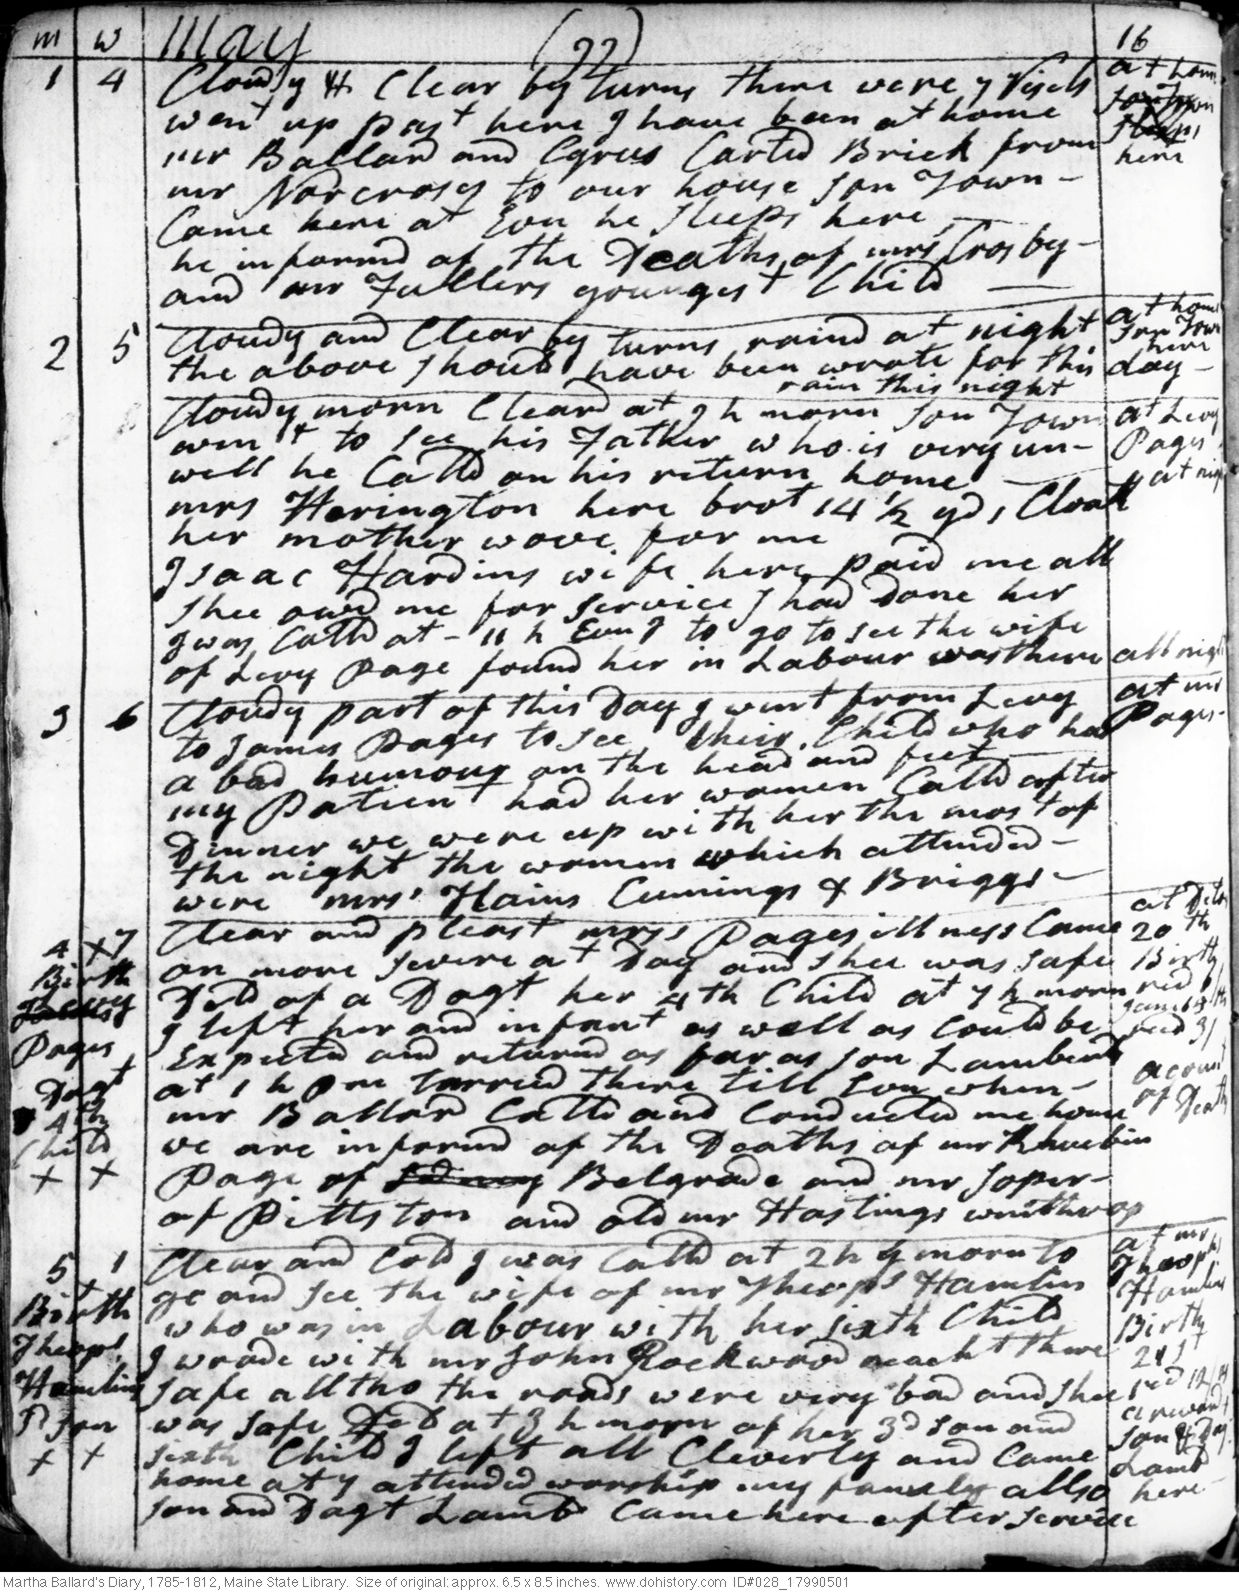 m w May (99) 16
1 4 Cloudy & Clear by turns there were 7 Visels at home
went up past here I have been at home son Town
mr Ballard and Cyrus Carted Brick from sleeps here
mr Norcrosss to our house son Town -
Came here at Evn he sleeps here
he informd of the Deaths of mrs Crosby -
and mr Fullers youngest Child
2 5 Cloudy and Clear by turns raind at night at home son Town here
the above should have been wrote for this day -
rain this night
Cloudy morn Cleard at 9 h morn son Town at Levy
went to see his Father who is very un- Pages
well he Calld on his return home at night
mrs Herington here brot 14 1/2 yds Cloath
her mother wove for me
Isaac Hardins wife here paid me all
shee owd me for service I had done her
I was Calld at - 11 h Evng to go to see the wife
of Levy Page found her in Labour was there all night
3 6 Cloudy part of this Day I went from Levy at mr
to James Pages to see their Child who had Pages -
a bad humour on the head and feet
my Patient had her women Calld after
Dinner we were up with her the most of
the night the women which attended -
were mrs Hains Cumings & Briggs -
4 x 7 Clear and pleast mrss Pages illness Came at
on more severe at Day and shee was safe 20th
Birth Deld of a Dagt her 4th Child at 7 h morn Birth
Levy I left her and infant as well as Could be
Pages Expected and returnd as far as son Lambards
Dagt at 1 h pm tarried there till Evn when - account
4th mr Ballard Calld and Conducted me home of Death
Child we are informd of the Deaths of mr Rhuebin
x x Page of Belgrade and mr Soper -
of Pittston and old mr Hastings winthrop
5 1 Clear and Cold I was Calld at 2 h morn to at mr
+ go and see the wife of mr Theops Hamlin Theophs
Birth who was in Labour with her sixth Child Hamlins
Theops I wrode with mr John Rockwood reacht there Birth 21st
Hamlins safe alltho the roads were very bad and shee
3d son was safe Deld at 3 h morn of her 3d son and
x x sixth Child I left all Cleverly and Came son & Dagt
home at 7 attended worship my famely allso Lamb
son and Dagt Lambd Came here after service here
Martha Ballard's Diary, 1785-1812, Maine State Library. Size of original: approx. 6.5 x 8.5 inches. www.dohistory.com ID#028_17990501